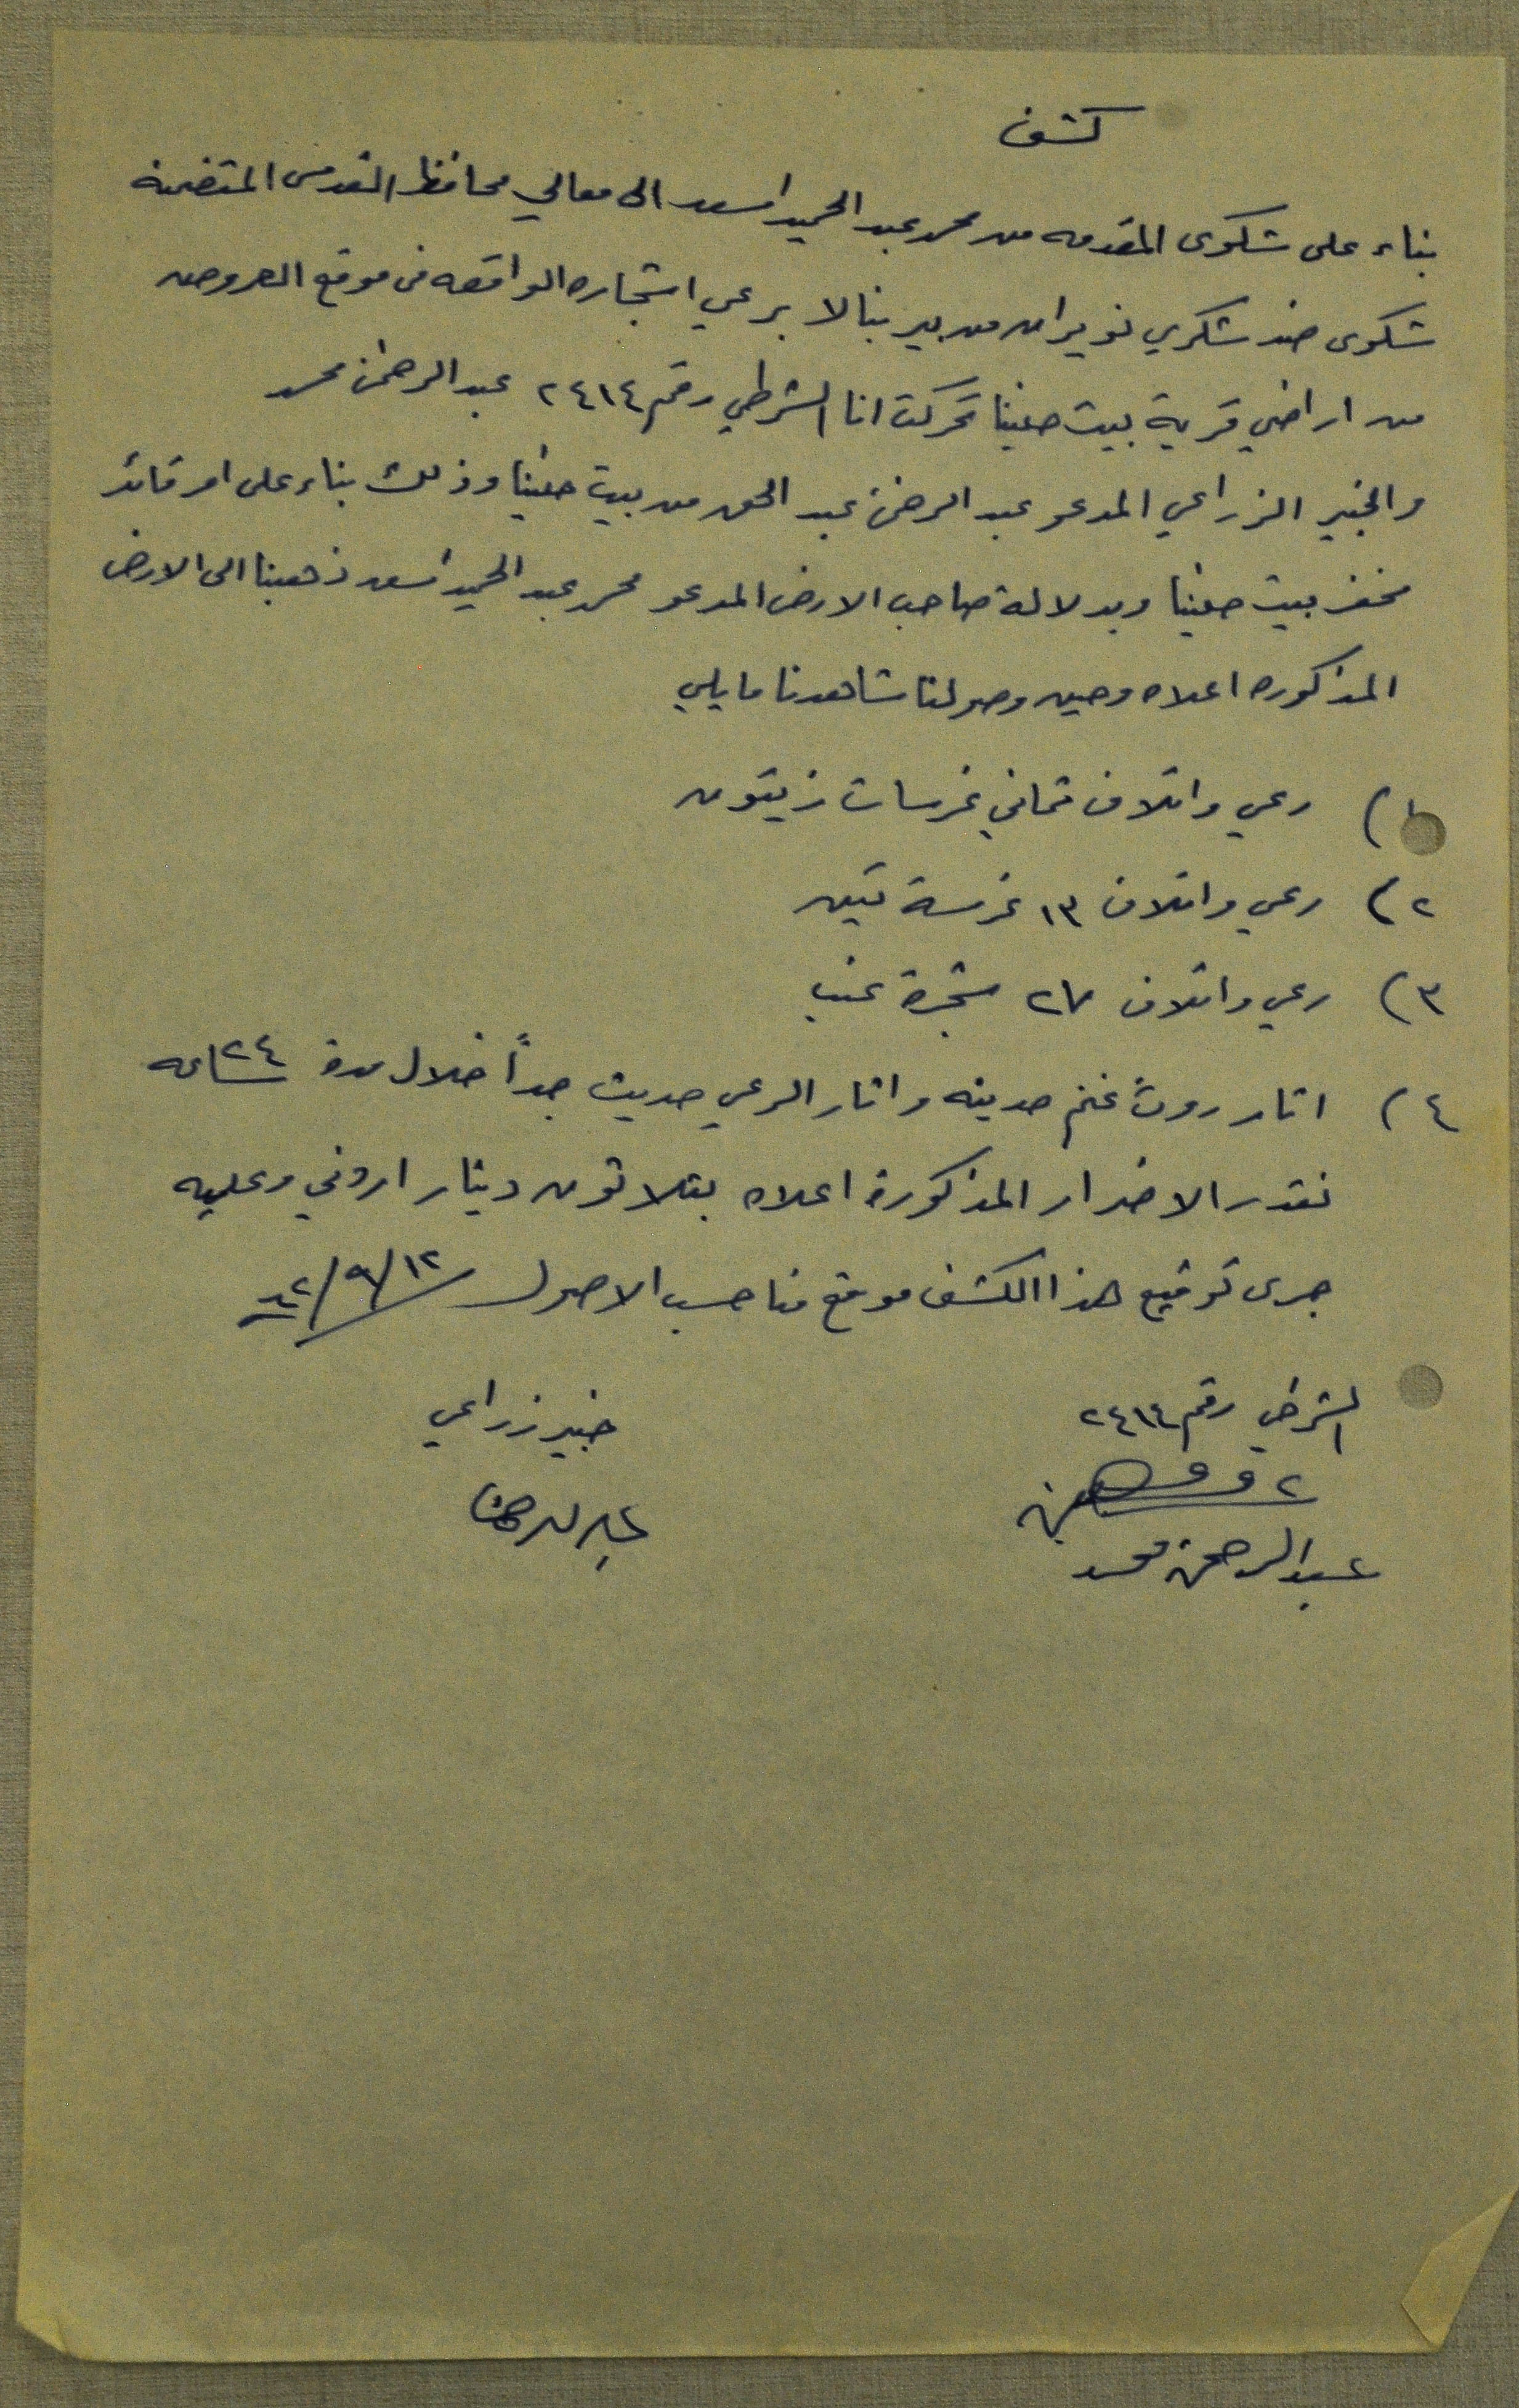 كشف
بناء على شكوى المقدمه من محمد عبد الحميد اسعد الى معالي محافظ القدس المتضمنه
شكوى ضد شكري نويران من بير بنالا برعي اشجاره الواقعه في موقع العروض
من اراضي قرية بيت حنينا تحركت انا الشرطي رقم ٢٤١٤ عبد الرحمن محمد
والخبير الزراعي المدعو عبد الرحمن عبد الحق من بيت حنينا وذلك بناء على امر قائد
مخفر بيت حنينا وبدلالة صاحب الارض المدعو محمد عبد الحميد اسعد ذهبنا الى الارض
المذكوره اعلاه وحين وصولنا شاهدنا ما يلي
١) رعي واتلاف ثماني غرسات زيتون
٢) رعي واتلاف ١٣ غرسة تين
٣) رعي واتلاف ٢٧ شجرة عنب
٤) اثار روث غنم حديثه واثار الرعي حديث جداً خلال مدة ٢٤ ساعه
نقدر الاضرار المذكورة اعلاه بثلاثون دينار اردني وعليه
جرى توقيع هذا الكشف موقع منا حسب الاصول ١٢/٩/٦٢
الشرطي رقم ٢٤١٤
خبير زراعي
عبد الرحمن
عبد الرحمن محمد